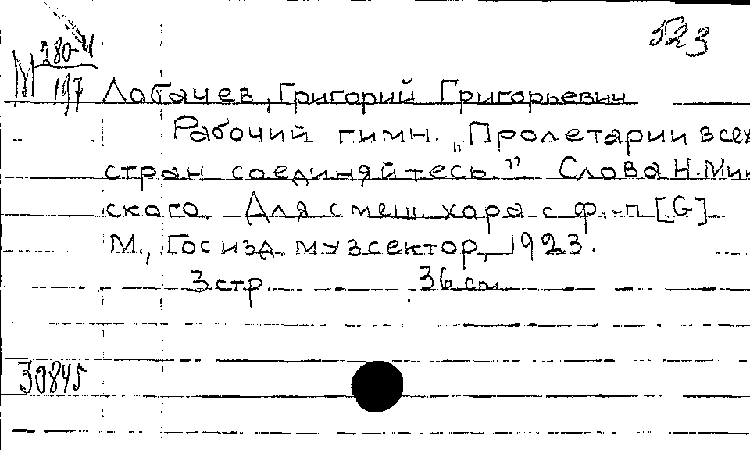 523
М 280-4
197
Лобачев, Григорий Григорьевич
Рабочий гимн. „Пролетарии всех
стран соединяйтесь." Слова Н. Мин
ского. Для смеш. хора с ф.-п [G]
М., Госизд. музсектор, 1923.
3 стр. 36 см.
30845